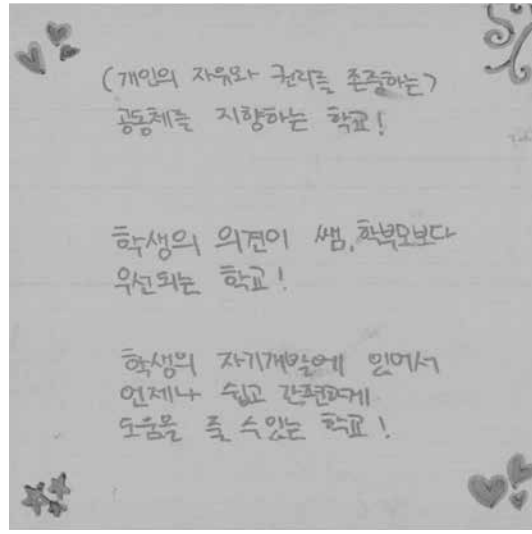 (개인의 자유와 권리를 존중하는)
공동체를 지향하는 학교!
학생의 의견이 쌤,학부모보다
우선되는 학교!
학생의 자기개발에 있어서
언제나 쉽고 간편하게
도움을 줄 수있는 학교!